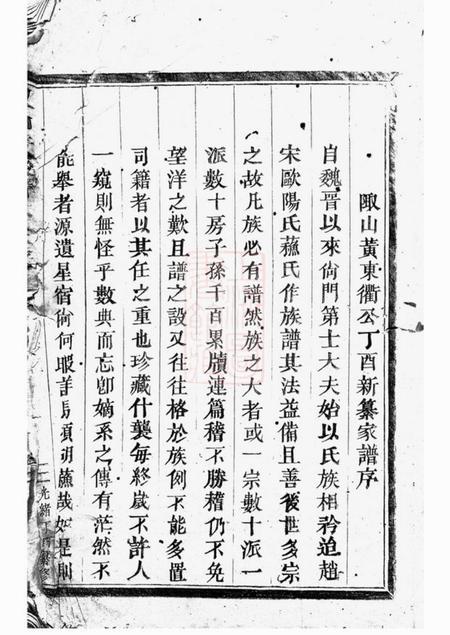 暨山黃東衢公丁酉新纂家譜序
自魏晉以來尙門第士大夫始以氏族相矜迨趙
宋歐陽氏蘓氏作族譜其法益備且善後世多宗
之故凡族必有譜然族之大者或一宗數十派一
派數十房子孫千百累牘連篇稽不勝稽仍不免
望洋之歎且譜之設又往往格於族例不能多置
司籍者以其任之重也珍藏什襲每終歲不許人
一窺則無怪乎數典而忘卽嫡系之傳有茫然不
能舉者源遺星宿尙何暇詳及須胡蘓哉如是則
光緒丁酉纂修